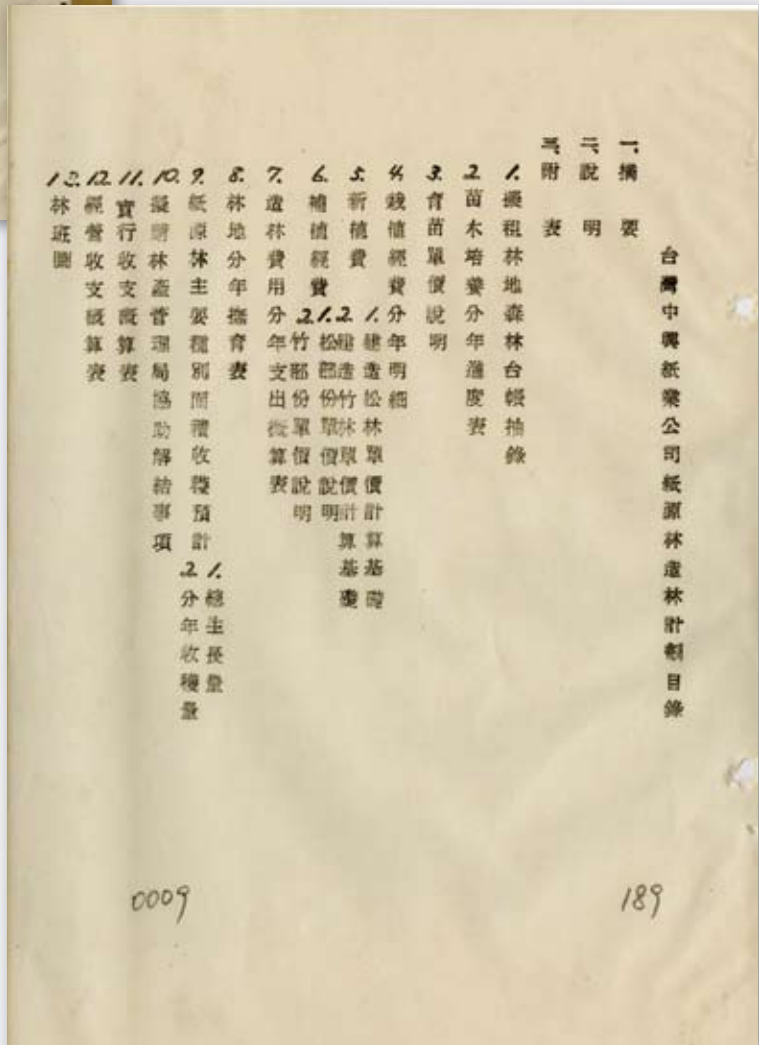 台灣中興紙業公司紙源林造林計劃目錄
一、摘要
二、說明
三、附表
1. 擬租林地森林台帳抽錄
2. 苗木培養分年進度表
3. 育苗單價說明
4. 栽植經費分年明細
5. 新植費
1. 建造松林單價計算基礎
2. 建造竹林單價計算基礎
6. 補植經費
1. 松部份單價說明
2. 竹部份單價說明
7. 造林費用分年支出概算表
8. 林地分年撫育表
9. 紙源林主要種別面積收穫預計
1. 總生長量
2. 分年收穫量
10. 擬請林產管理局協助解結事項
11. 實行收支概算表
12. 經營收支概算表
13. 林班圖
189
0009